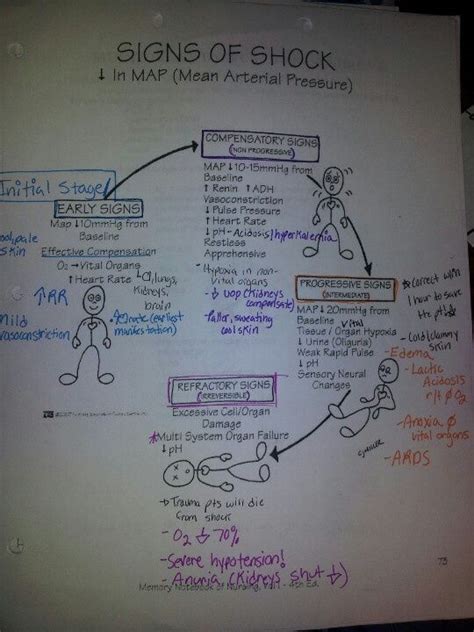 SIGNS OF SHOCK
↓ In MAP (Mean Arterial Pressure)
Initial Stage
EARLY SIGNS
Map ↓10mmHg from
Baseline
cool, pale
skin
Effective Compensation
O₂ → Vital Organs
↑ Heart Rate
lungs,
Kidneys,
brain
↑ RR
(earliest
manifestation)
Mild
vasoconstriction
COMPENSATORY SIGNS
(NON PROGRESSIVE)
MAP ↓10-15mmHg from
Baseline
↑ Renin ↑ ADH
Vasoconstriction
↓ Pulse Pressure
↑ Heart Rate
↓ pH - Acidosis/hyperkalemia
Restless
Apprehensive
- Hypoxia in non-
Vital organs
- ↓ UOP (Kidneys
compensate)
- Pallor, sweating
cool skin
PROGRESSIVE SIGNS
(INTERMEDIATE)
MAP ↓ 20mmHg from
Baseline vital
Tissue / Organ Hypoxia
↓ Urine (Oliguria)
Weak Rapid Pulse
↓ pH
Sensory Neural
Changes
* Correct within
1 hour to save
the pt!
- Cold/clammy
skin
- Edema
- Lactic
Acidosis
r/t Ø O₂
- Anoxia Ø
vital organs
- ARDS
REFRACTORY SIGNS
(IRREVERSIBLE)
Excessive Cell/Organ
Damage
* Multi System Organ Failure
↓ pH
Trauma pts will die
from shock
- O₂ ↓ 70%
- Severe hypotension!
- Anuria (Kidneys shut ↓)
73
Memory Notebook of Nursing, Vol I - 4th Ed.